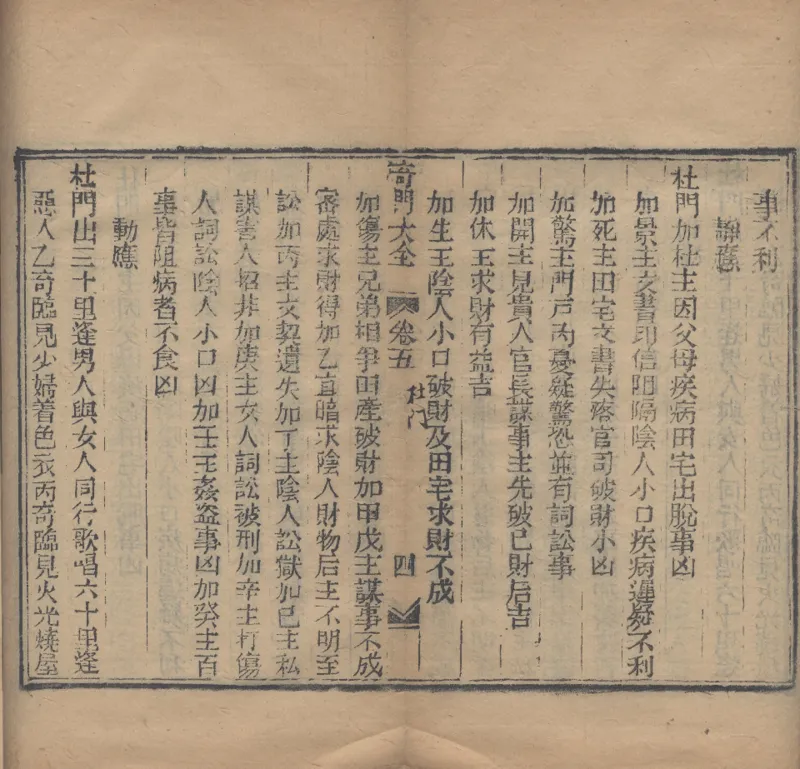 事不利
靜應
杜門加杜主因父母疾病田宅出脫事凶
加景主文書印信阻隔陰人小口疾病遲疑不利
加死主田宅文書失落官司破財小凶
加驚主門戶內憂疑驚恐並有詞訟事
加開主見貴人官長謀事主先破己財后吉
加休主求財有益吉
加生主陰人小口破財及田宅求財不成
奇門大全 卷五 杜门 四
加傷主兄弟相爭田產破財加甲戊主謀事不成
審處求財得加乙宜暗求陰人財物后主不明至
訟加丙主文契遺失加丁主陰人訟獄加己主私
謀害人招非加庚主女人詞訟被刑加辛主打傷
人詞訟陰人小口凶加壬主姦盜事凶加癸主百
事皆阻病者不食凶
動應
杜門出三十里逢男人與女人同行歌唱六十里逢
惡人乙奇臨見少婦着色衣丙奇臨見火光燒屋